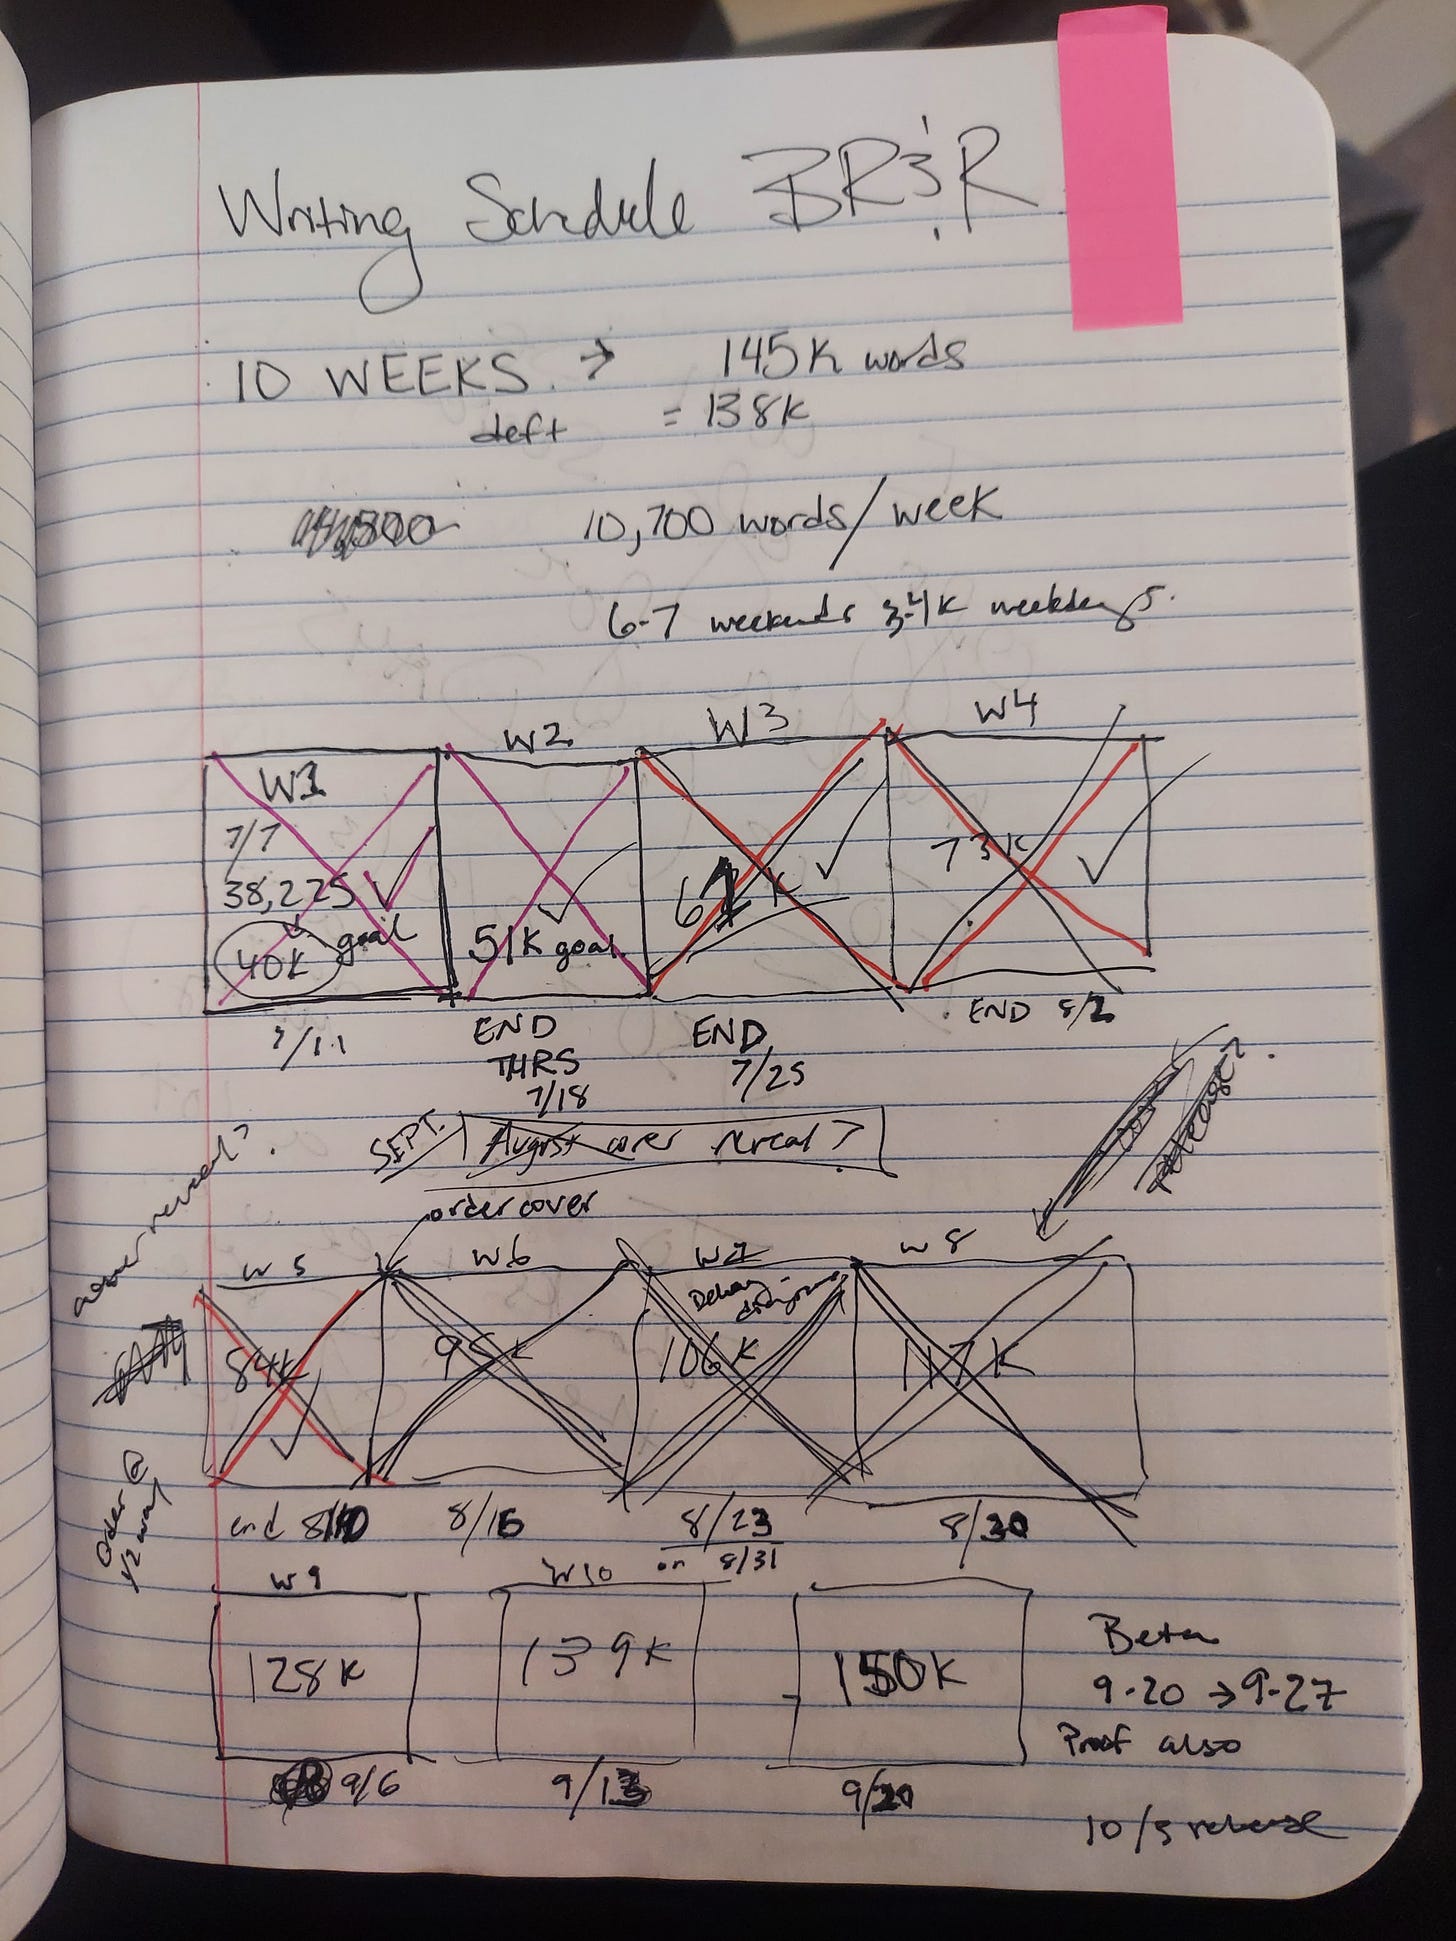 Writing Schedule BR&R
10 WEEKS → 145K words
= 138K
10,700 words/week
6-7 weekends 3-4K weekdays.
W1 W2 W3 W4
7/7
38,225
40K goal
51K goal
K
73K
7/11
END THRS 7/18
END 7/25
END 8/2
SEPT. August cover reveal?
cover reveal?
order cover
W5 W6 W7 W8
84K
106K
117K
Order @ 1/2 way
end 8/10
8/16
8/23
on 8/31
8/30
W9 W10
128K 139K 150K
9/6 9/13 9/20
Beta
9-20 → 9-27
Proof also
10/5 release